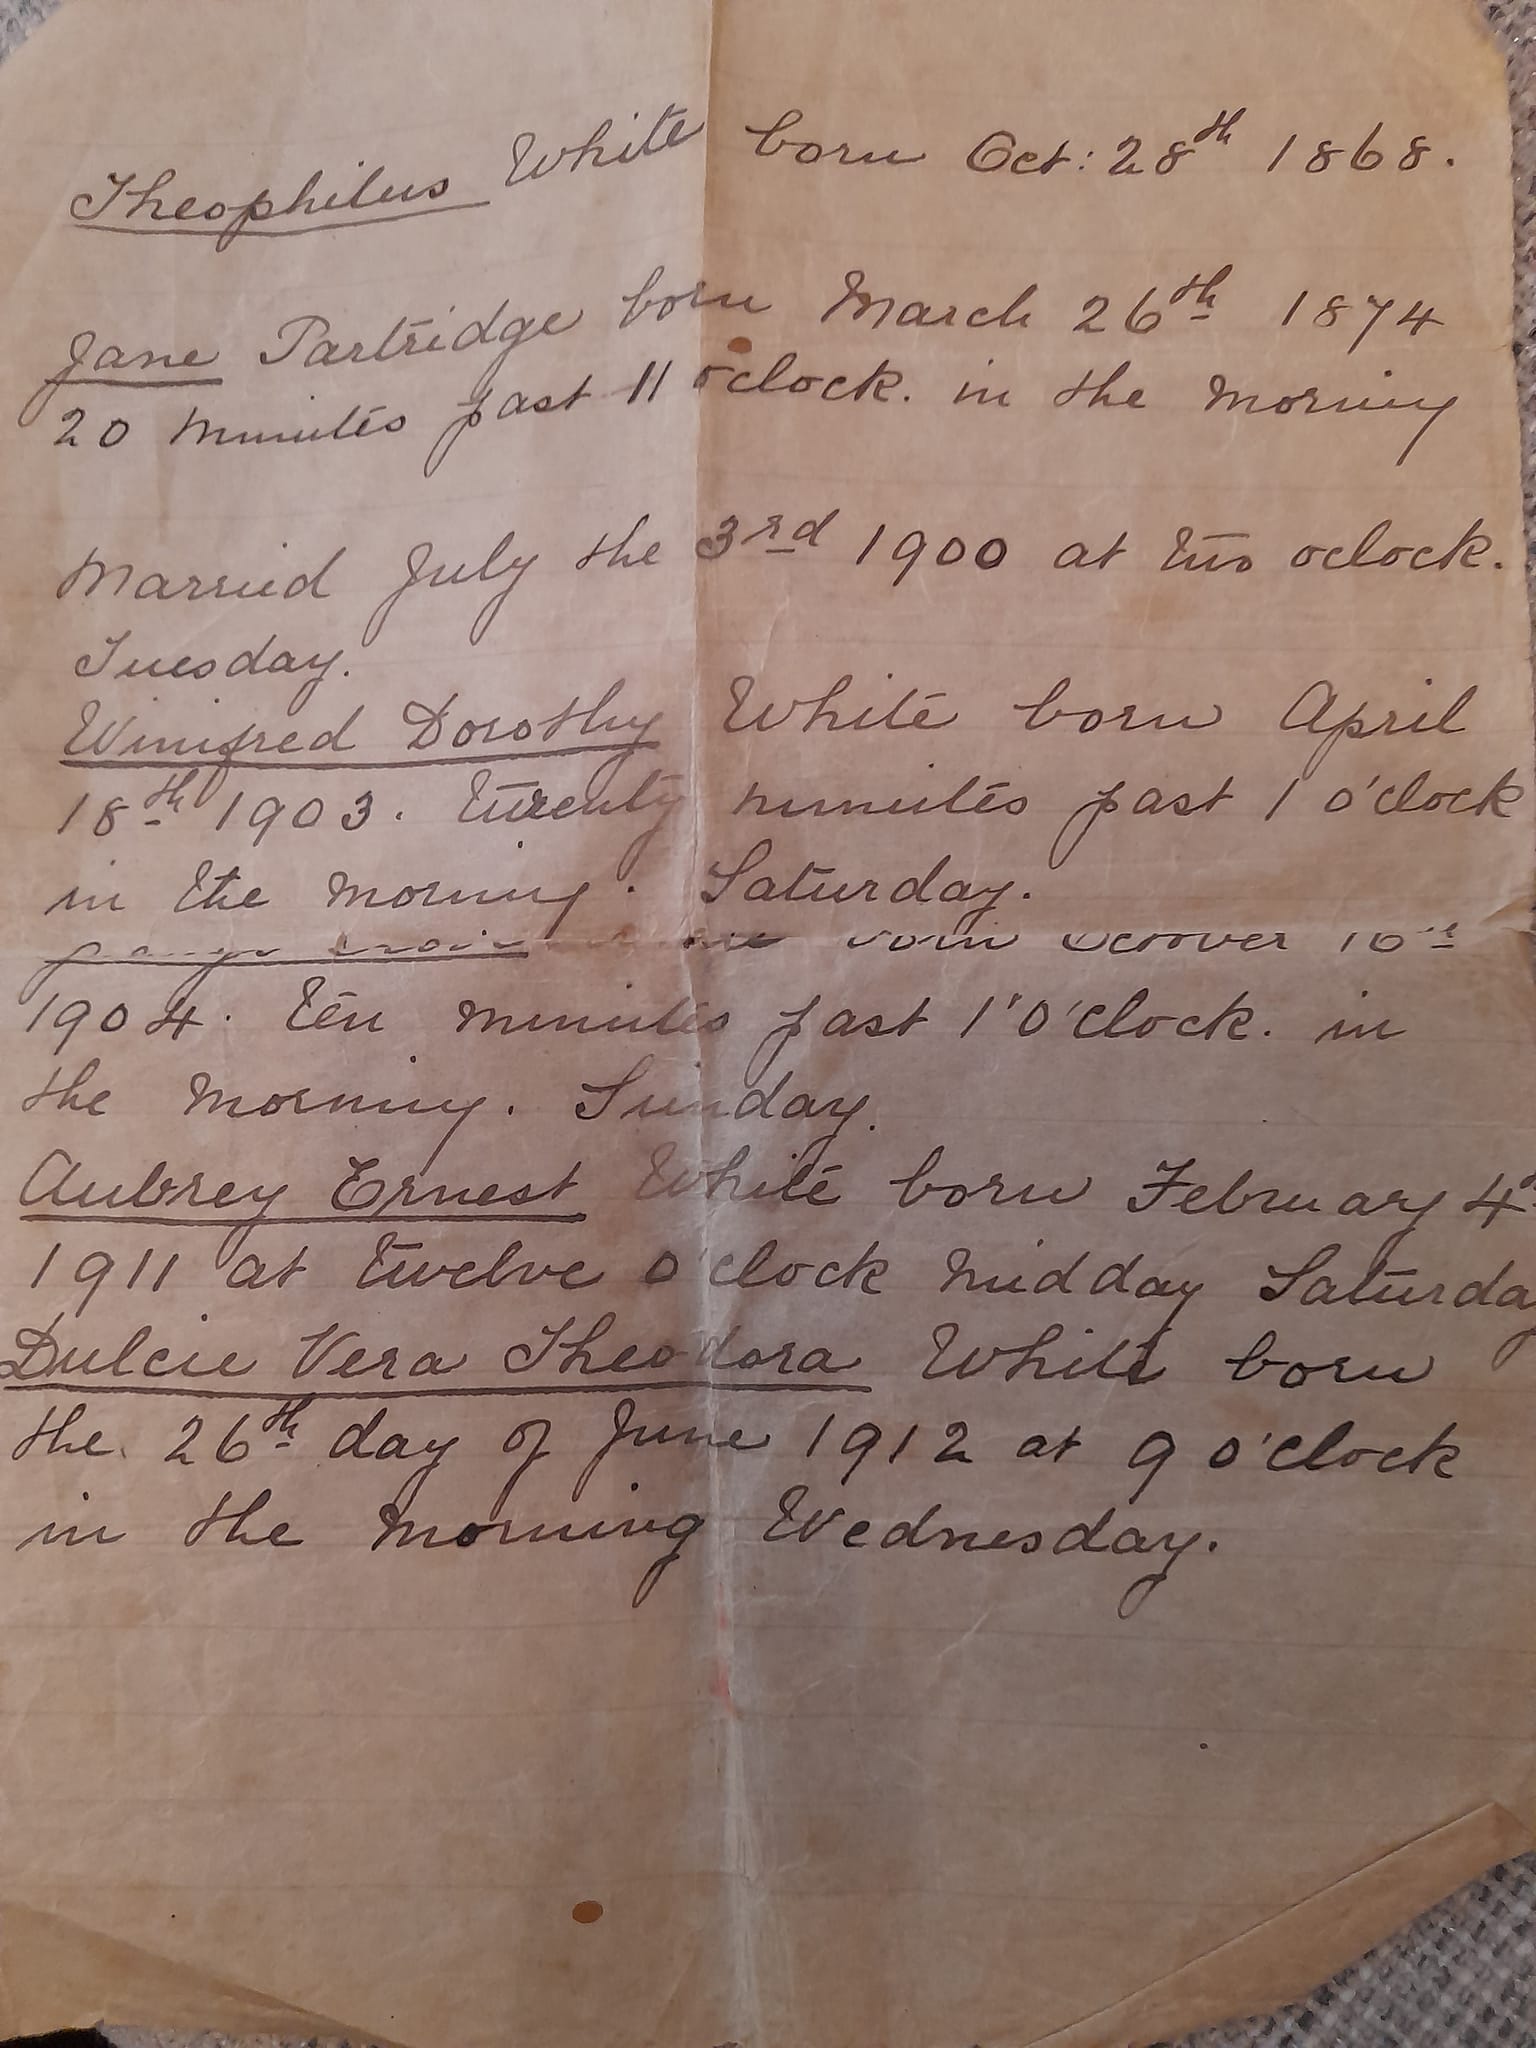 Theophilus White born Oct: 28th 1868.
Jane Partridge born March 26th 1874
20 minutes past 11 oclock. in the morning
Married July the 3rd 1900 at two oclock.
Tuesday.
Winifred Dorothy White born April
18th 1903. Twenty minutes past 1 o'clock
in the morning. Saturday.
born October 16th
1904. Ten minutes past 1 O'Clock. in
the morning. Sunday.
Aubrey Ernest White born February 4
1911 at twelve o'clock midday Saturday
Dulcie Vera Theodora White born
the 26th day of June 1912 at 9 o'clock
in the morning Wednesday.